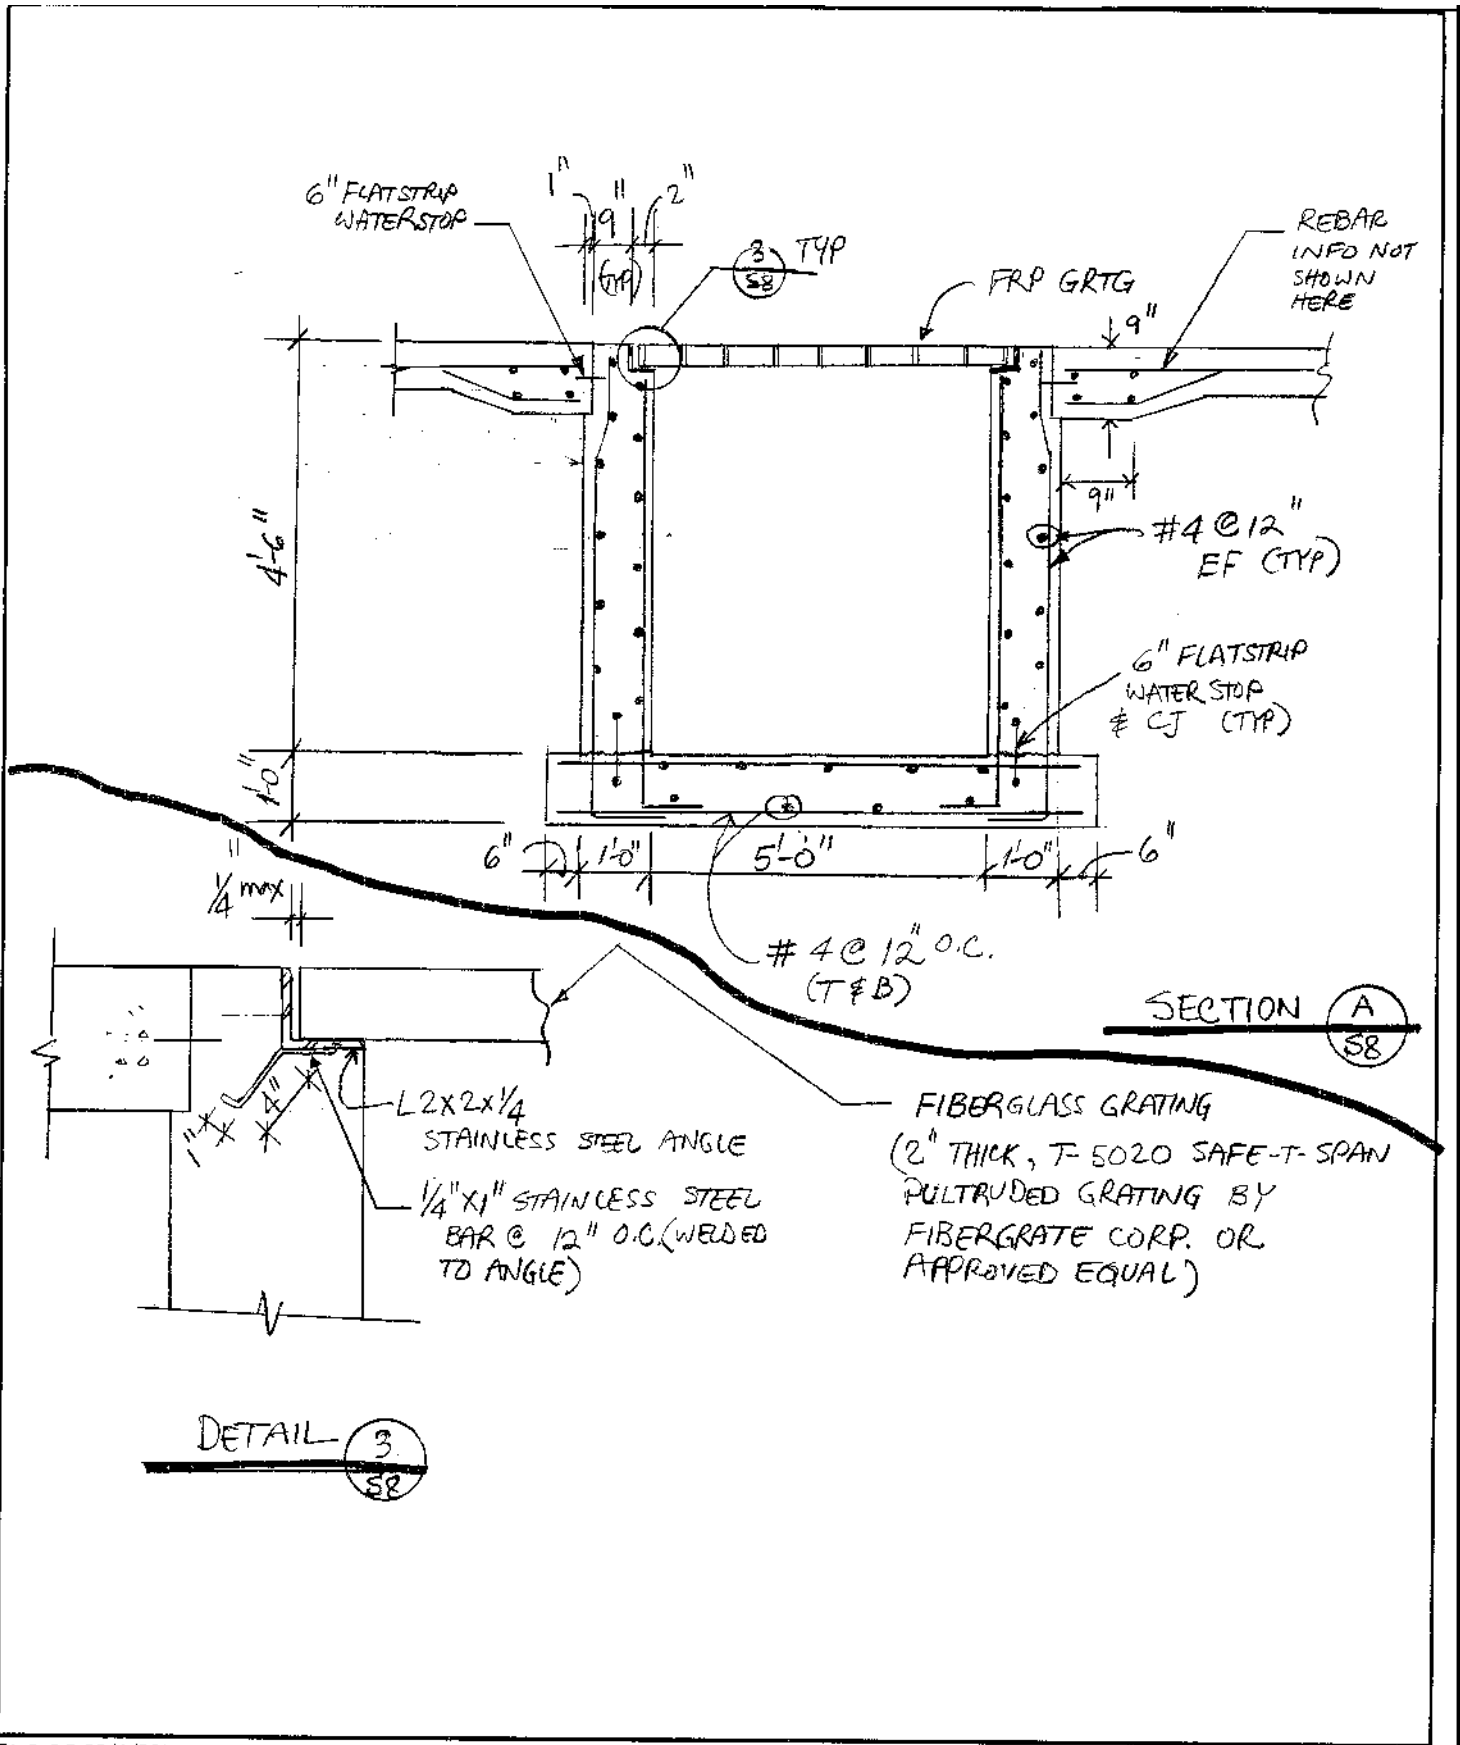 6" FLATSTRIP
WATERSTOP
1"
9"
(TYP)
2"
3
S8
TYP
FRP GRTG
REBAR
INFO NOT
SHOWN
HERE
9"
9"
4'-6"
#4 @ 12"
EF (TYP)
6" FLATSTRIP
WATER STOP
& CJ (TYP)
1'-0"
6"
1'-0"
5'-0"
1'-0"
6"
# 4 @ 12" O.C.
(T & B)
SECTION A
S8
1/4" max
4"
1"
L 2X2X1/4
STAINLESS STEEL ANGLE
1/4"X1" STAINLESS STEEL
BAR @ 12" O.C. (WELDED
TO ANGLE)
FIBERGLASS GRATING
(2" THICK, T-5020 SAFE-T-SPAN
PULTRUDED GRATING BY
FIBERGRATE CORP. OR
APPROVED EQUAL)
DETAIL 3
S8